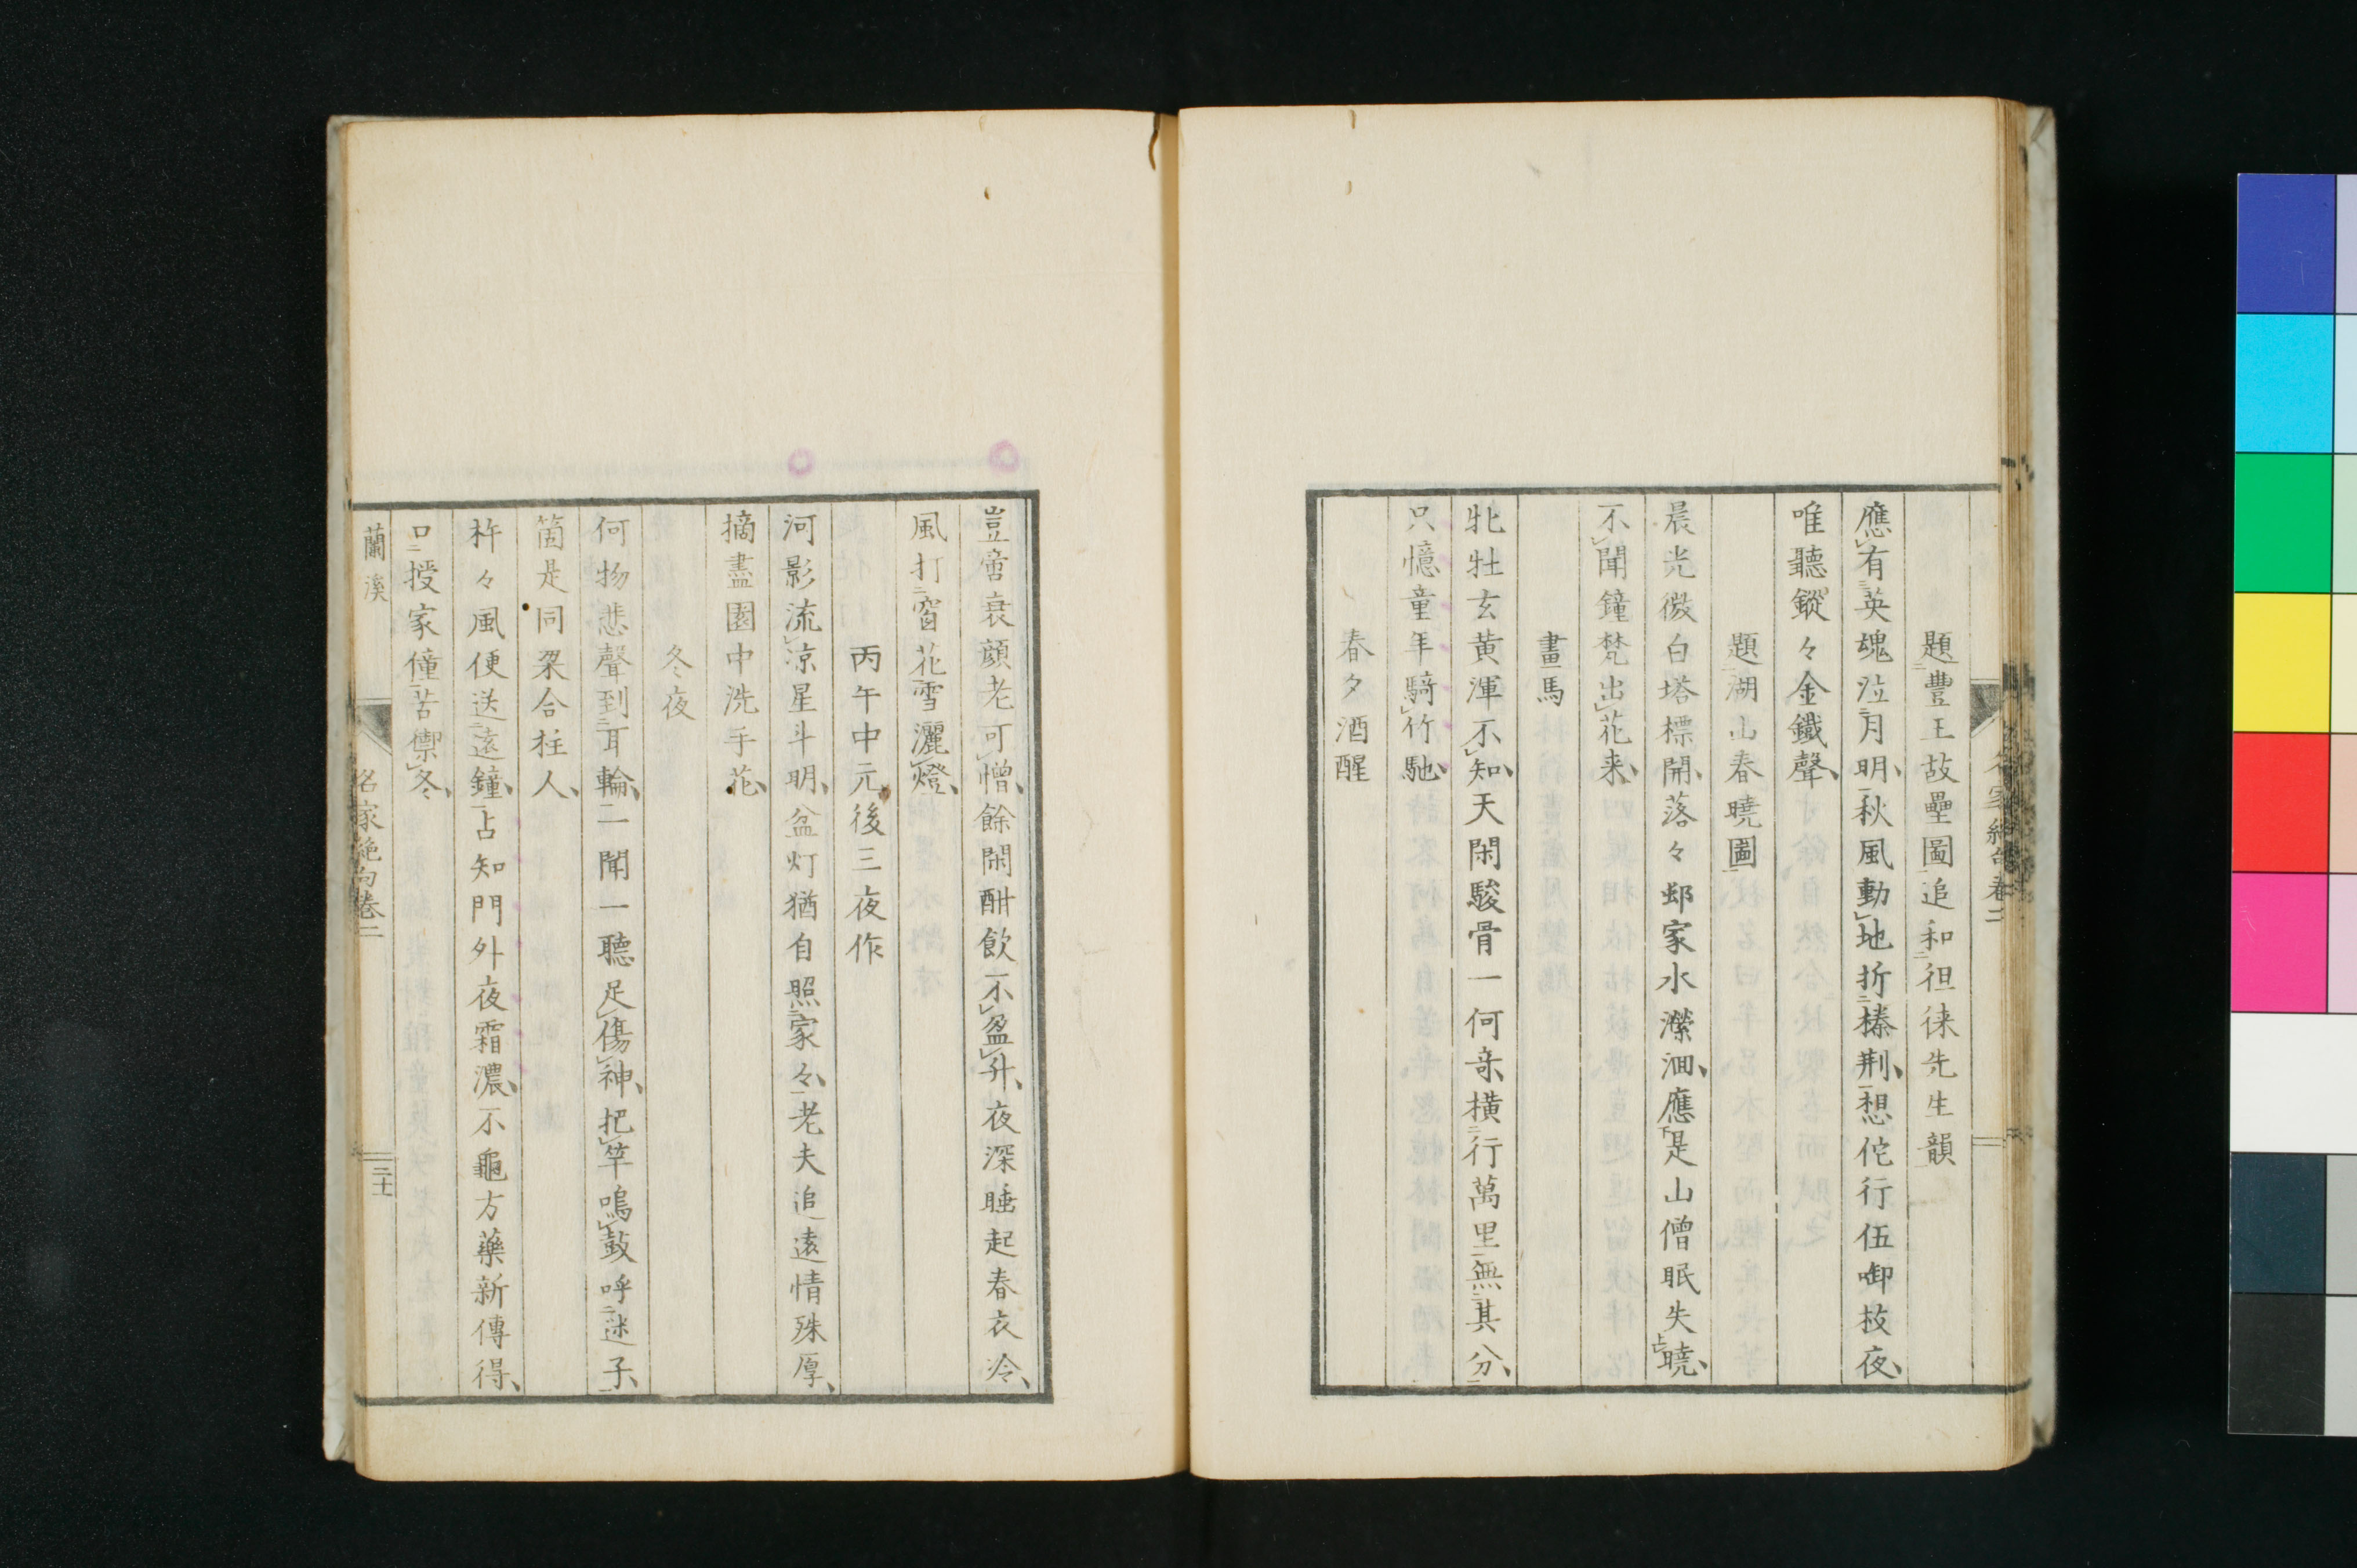 題豊王故壘圖追和徂徠先生韻
應有英魂泣月明秋風動地折榛荆想佗行伍啣枚夜
唯聽鏦々金鐵聲
題湖山春曉圖
晨光微白塔標開落々邨家水瀠洄應是山僧眠失曉
不聞鐘梵出花来
畫馬
牝牡玄黄渾不知天閑駿骨一何竒横行萬里無其分
只憶童年騎竹馳
春夕酒醒
豈啻衰顔老可憎餘閑酣飲不盈升夜深睡起春衣冷
風打窗花雪灑燈
丙午中元後三夜作
河影流凉星斗明盆灯猶自照家々老夫追遠情殊厚
摘盡園中洗手花
冬夜
何物悲聲到耳輪二聞一聽足傷神把竿鳴鼓呼迷子
箇是同梁合柱人
杵々風便送遠鐘占知門外夜霜濃不龜方藥新傳得
口授家僮苦禦冬
蘭溪
名家絶句巻二
二十